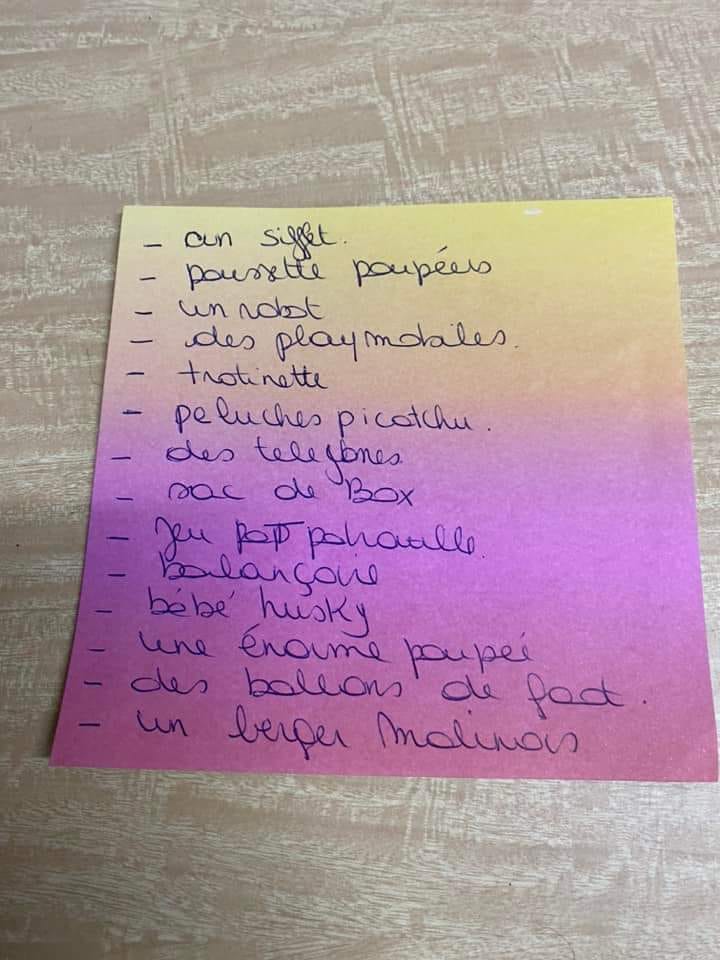 - un sifflet.
- poussette poupées
- un robot
- des playmobiles.
- trotinette
- peluches picatchu.
- des telefones
- sac de Box
- Jeu patouille.
- balançoire
- bébé husky
- une énorme poupée
- des ballons de foot.
- un berger Malinois